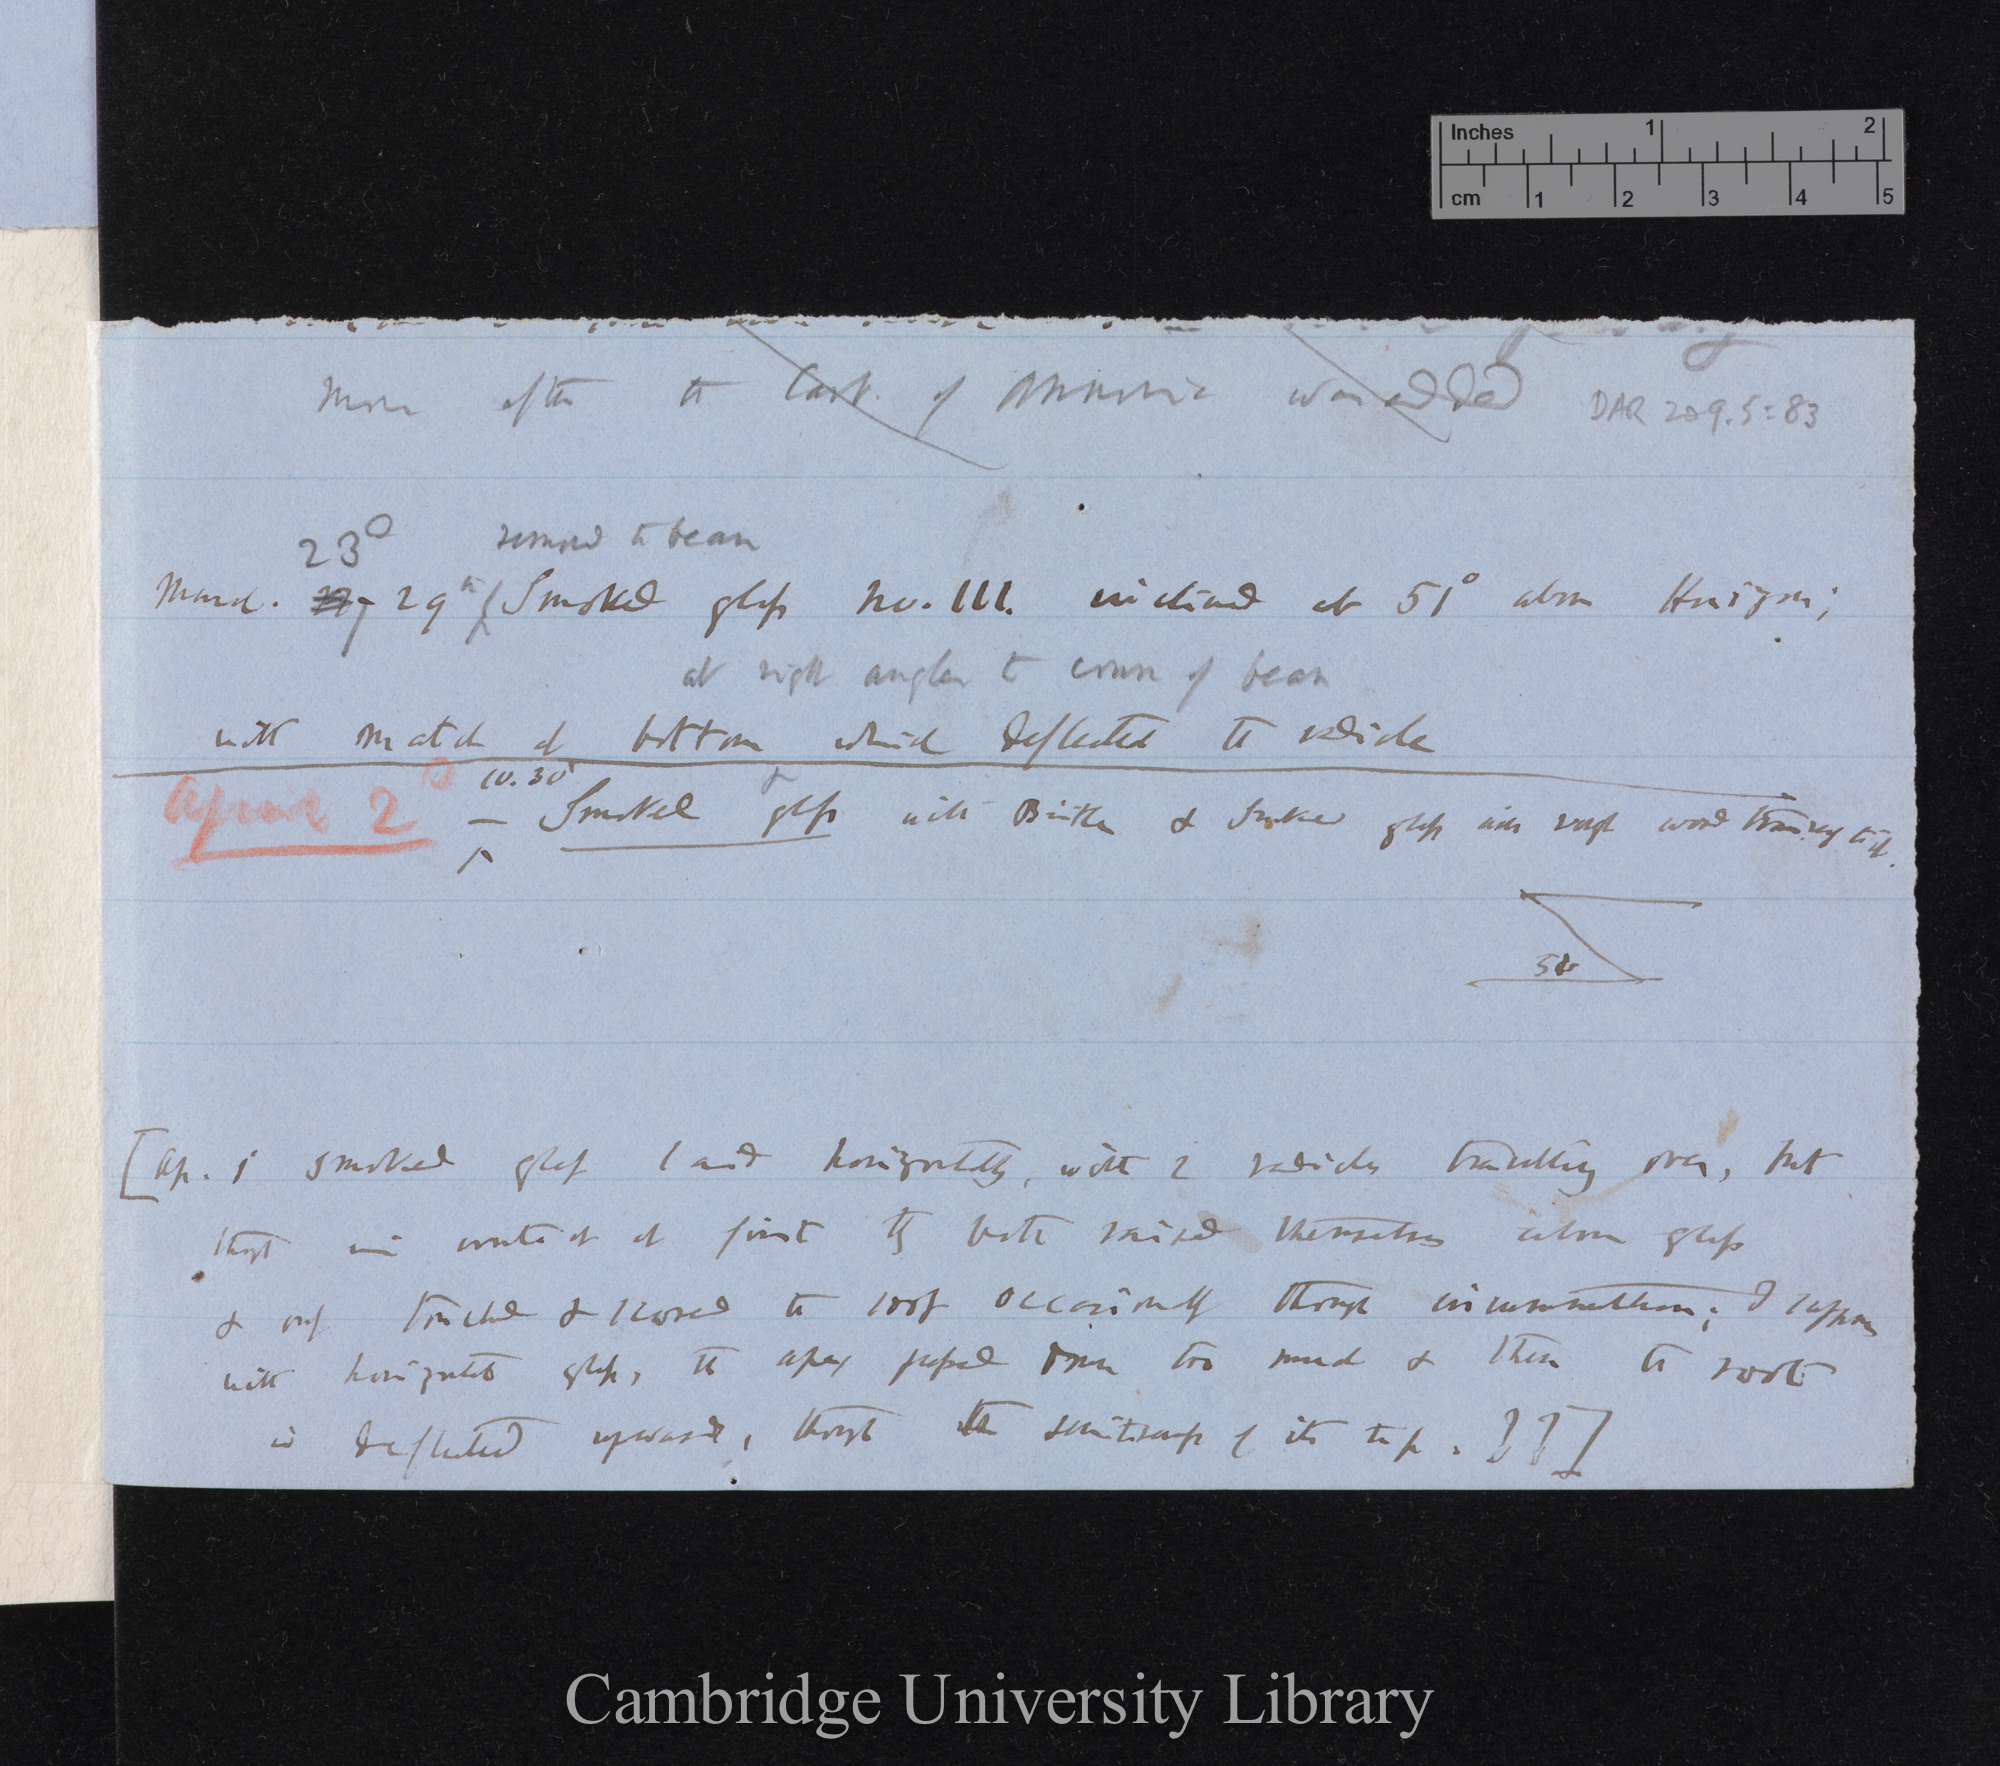 Inches 1 2
cm 1 2 3 4 5
more after the Carb. of Ammonia was added
DAR 209.5:83
23° round the bean
March. 29th Smoked glass No. III. inclined at 51° above Horizon;
at right angles to of bean
with match at bottom which deflected the radicle
April 2°
10.30' Smoked glass with & Smoked glass wood
50
[Ap. 1 smoked glass laid horizontally, with 2 radicles travelling over, but
though in contact at first they both raised themselves above glass
& only touched & scored the soot occasionally through circumnutation; I suppose
with horizontal glass, the apex pressed down too much & then the root
is deflected upwards, through the sensitiveness of its tip.]]]
Cambridge University Library